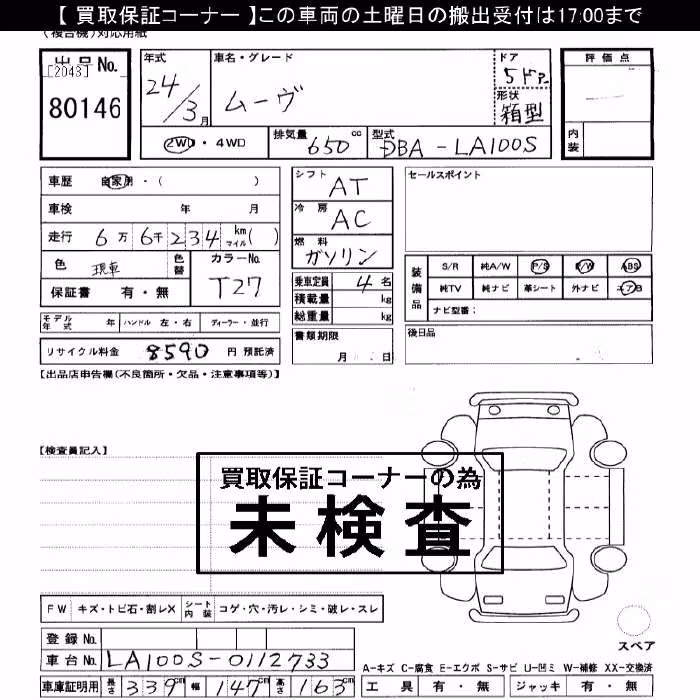 【 買取保証コーナー 】この車両の土曜日の搬出受付は17:00まで
（複合機）対応用紙
出品No.
[2043]
80146
年式
24/3月
車名・グレード
ムーヴ
ドア
5ドア
形状
箱型
評価点
内装
2WD・4WD
排気量 650 cc
型式 DBA-LA100S
車歴 自家用・( )
車検 年 月
走行 6万6千234 km マイル( )
色 現車 色替
カラーNo. T27
保証書 有・無
シフト AT
冷房 AC
燃料 ガソリン
乗車定員 4 名
積載量 kg
総重量 kg
書類期限
月 日
セールスポイント
装備品
S/R 純A/W P/S P/W ABS
純TV 純ナビ 革シート 外ナビ エアB
ナビ型番:
後日品
モデル年式 年 ハンドル 左・右 ディーラー・並行
リサイクル料金 8590 円 預託済
【出品店申告欄(不良箇所・欠品・注意事項等)】
【検査員記入】
買取保証コーナーの為
未検査
FW キズ・トビ石・割レX シート内装 コゲ・穴・汚レ・シミ・破レ・スレ
登録No.
車台No. LA100S-0112733
車庫証明用 長さ 339cm 幅 147cm 高さ 163cm
スペア
A-キズ C-腐食 E-エクボ S-サビ U-凹ミ W-補修 XX-交換済
工具 有・無 ジャッキ 有・無